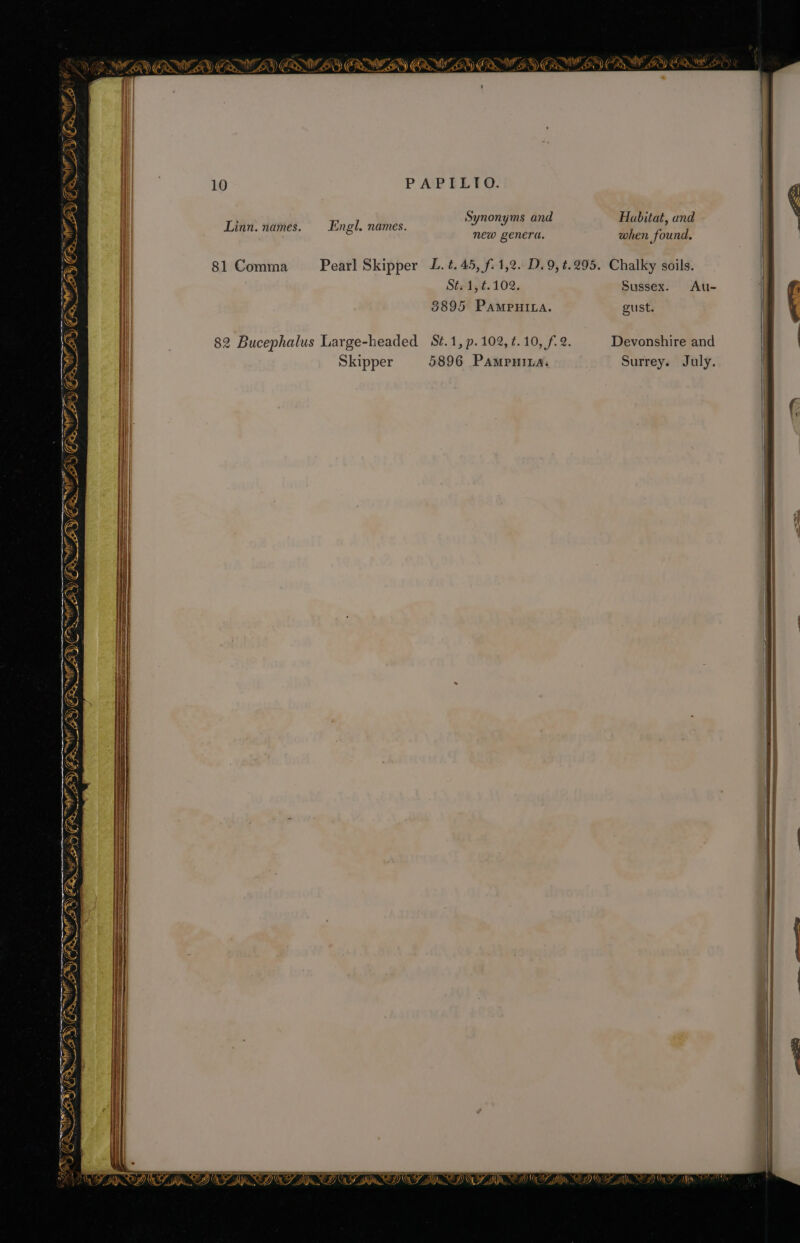 10 PAPILIO.
Linn. names. Engl. names. Synonyms and new genera. Habitat, and when found.
81 Comma Pearl Skipper L. t. 45, f. 1, 2. D. 9, t. 295. Chalky soils.
St. 1, t. 102. Sussex. Au-
3895 PAMPHILA. gust.
82 Bucephalus Large-headed St. 1, p. 102, t. 10, f. 2. Devonshire and
Skipper 5896 PAMPHILA. Surrey. July.